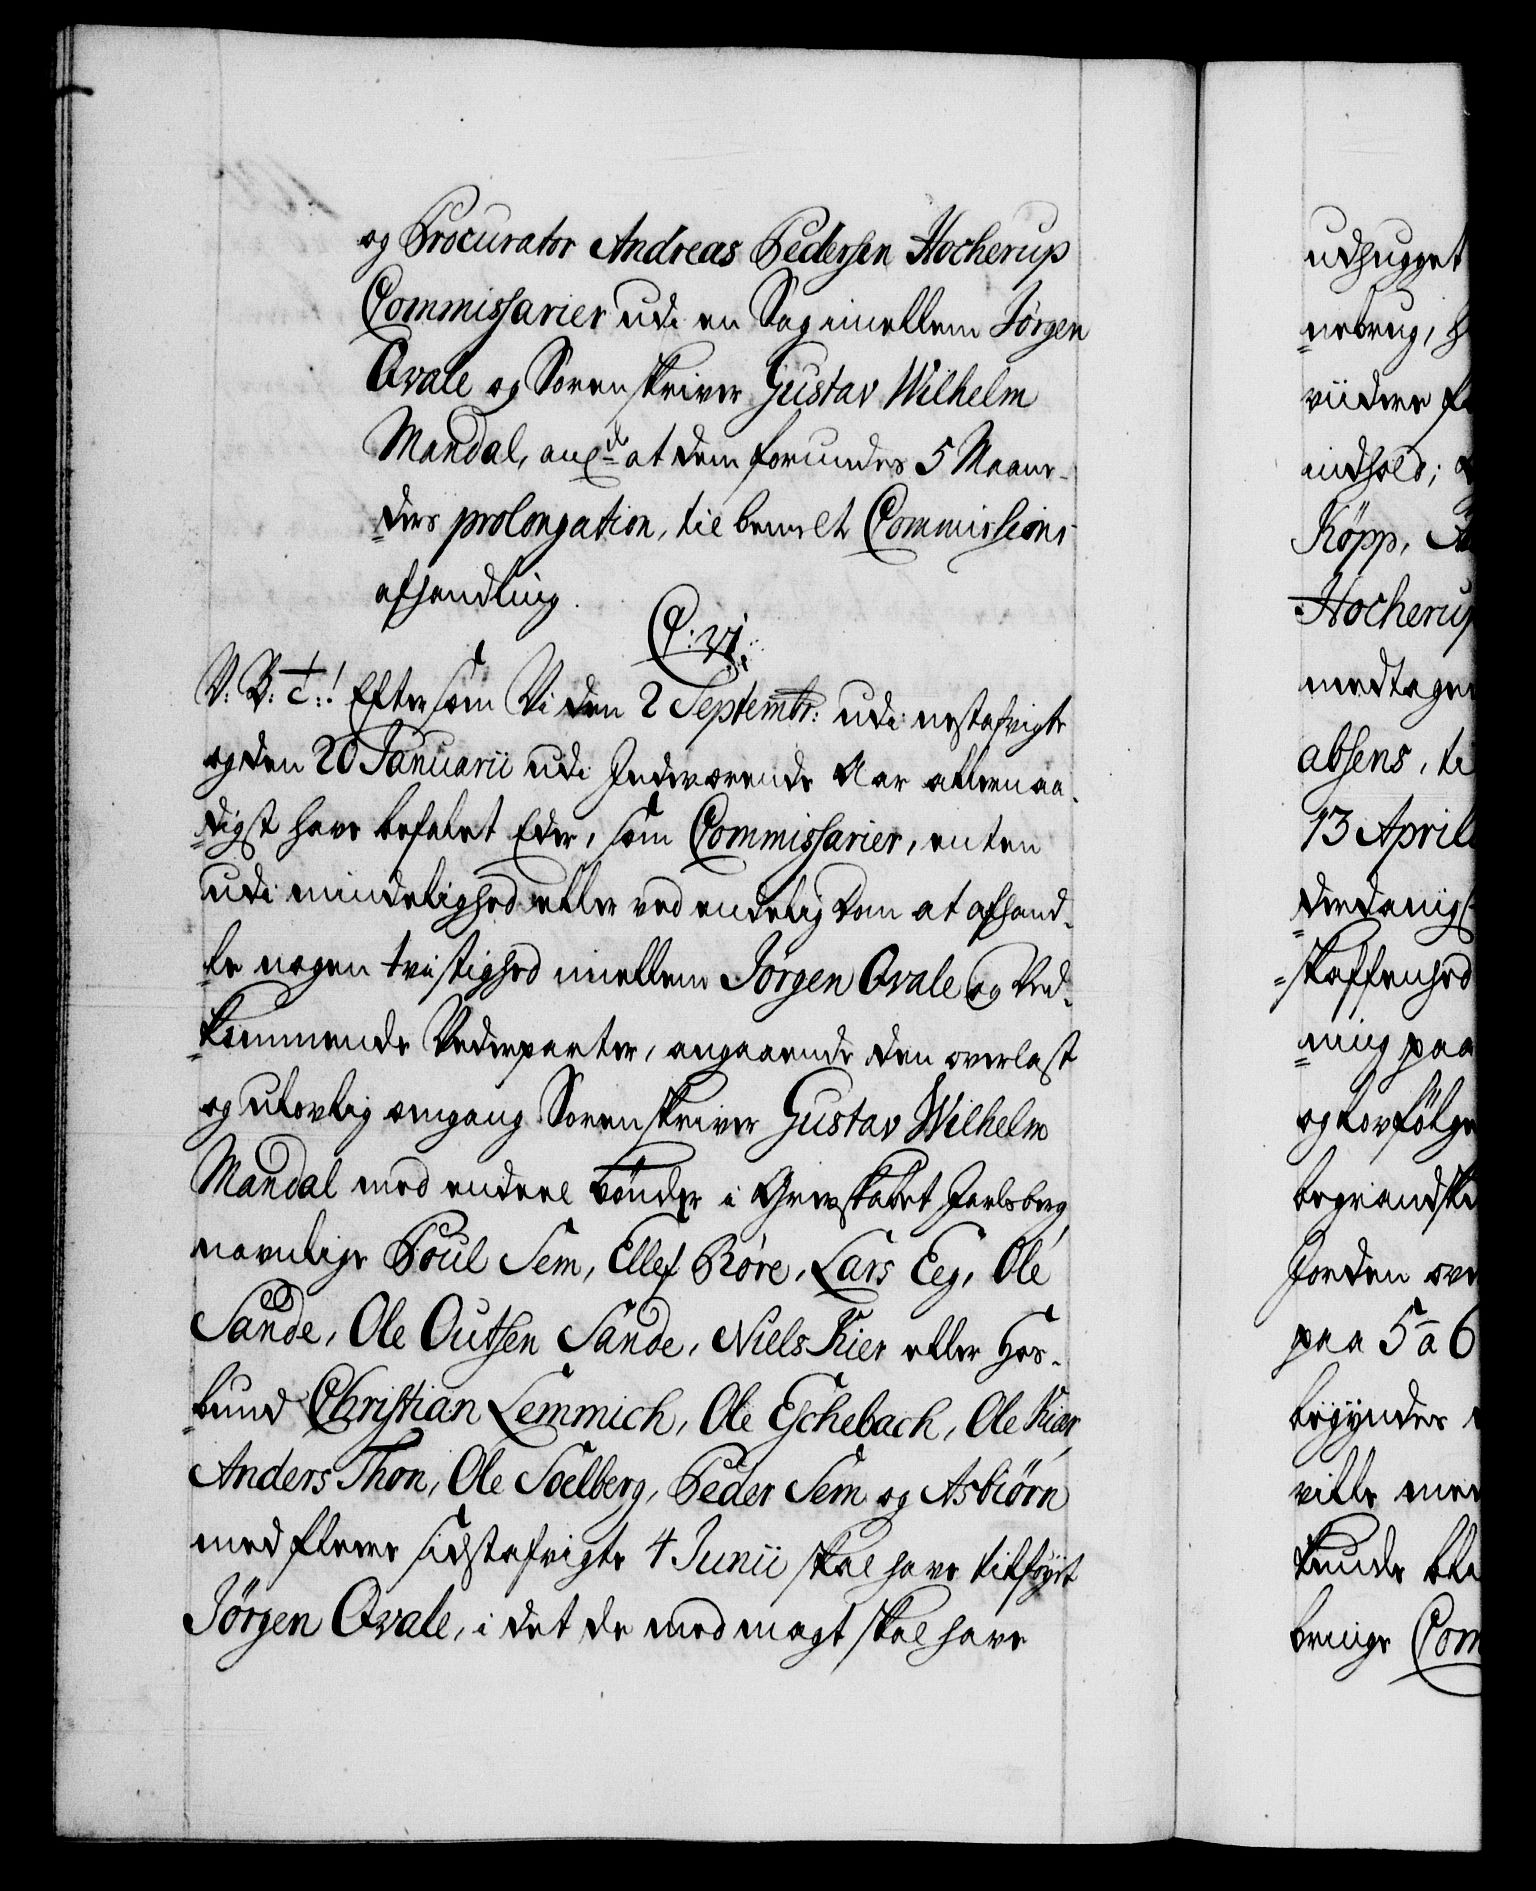 og Procurator Andreas Pedersen Hocherup
Commissarier udi en Sag imellem Jørgen
Qvale og Sorenskriver Gustav Wilhelm
Mandal, at dem forundes 5 Maane-
=ders prolongation, til bemelt Commissions
afhandling.
C: VI.
V: B: Eftersom Vi den 2 Septembr: udi nestafvigte
og den 20 Januarii udi Indeværende Aar allernaa-
=digst have befalet Eder, som Commissarier, enten
udi mindelighed eller ved endelig Dom at afhand-
=le nogen tvistighed imellem Jørgen Qvale og Ved-
=kommende Vederparter, angaaende den overlast
og ulovlig omgang Sorenskriver Gustav Wilhelm
Mandal med endeel bönder i Grevskabet Jarlsberg,
navnlige Poul Sem, Ellef Röre, Lars Eeg, Ole
Sande, Ole Outsen Sande, Niels Kier eller Hos-
=bund Christian Lemmich, Ole Eschebach, Ole Kier,
Anders Thon, Ole Soelberg, Peder Sem og Asbiörn
med flere sidstafvigte 4 Junii skal have tilföyet
Jørgen Qvale, i det de med magt skal have
udhugget
=nebrug,
viidere
indhold;
Köpp,
Hocherup
medtagen
absens,
13 April
=derdanigs
=skaffenhed
=ning paa
og lovfölge
begrandske
Jorden over
paa 5 a 6
begyndes
ville
kunde
bringe Com